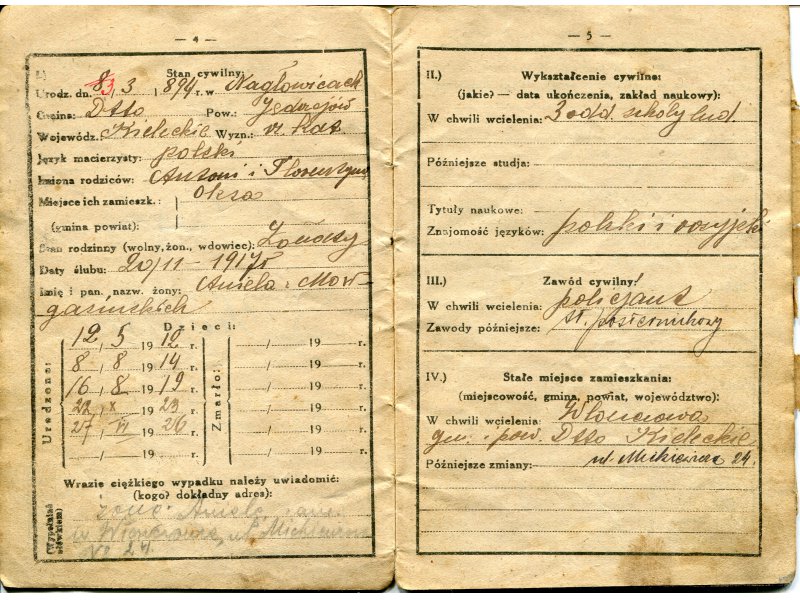 — 4 —
I.) Stan cywilny
Urodz. dn. 3 | 894 r. w Nagłowicach
Gmina: Dtto Pow.: Jędrzejów
Wojewódz. Kieleckie Wyzn.: rz. kat
Język macierzysty: polski
Imiona rodziców: Antoni i Florentyna
Miejsce ich zamieszk.: Oksa
(gmina powiat):
Stan rodzinny (wolny, żon., wdowiec): Żonaty
Daty ślubu: 20/11 - 1917 r
Imię i pan. nazw. żony: Aniela z
Dzieci:
Urodzone:
Zmarło:
12 / 5 1912 r. / 19 r.
8 / 8 1914 r. / 19 r.
16 / 8 1919 r. / 19 r.
22 / IX 1923 r. / 19 r.
27 / VI 1926 r. / 19 r.
/ 19 r. / 19 r.
Wrazie ciężkiego wypadku należy uwiadomić:
(kogo? dokładny adres):
(Wypełniać ołówkiem)
żona Aniela zam.
w ul. Mickiewicza
No 24
— 5 —
II.) Wykształcenie cywilne:
(jakie? — data ukończenia, zakład naukowy):
W chwili wcielenia: 3 odd. szkoły lud
Późniejsze studja:
Tytuły naukowe:
Znajomość języków: polski i rosyjski
III.) Zawód cywilny:
W chwili wcielenia: policjant
Zawody późniejsze: st. posterunkowy
IV.) Stałe miejsce zamieszkania:
(miejscowość, gmina, powiat, województwo):
W chwili wcielenia: Włoszczowa
gm. i pow. Dtto Kieleckie
Późniejsze zmiany: ul. Mickiewicza 24.